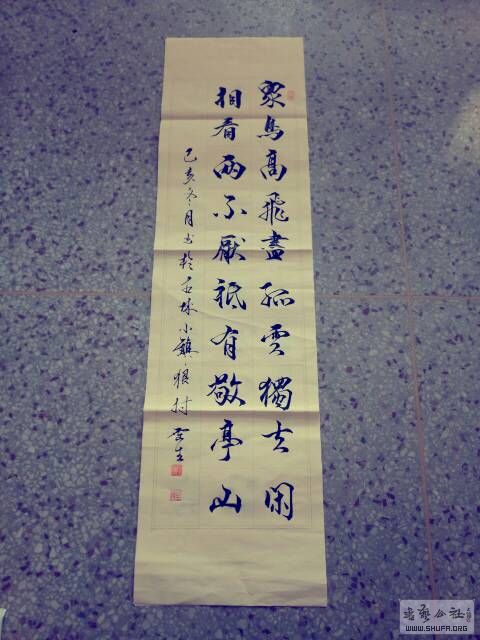 眾鳥高飛盡孤雲獨去閑
相看兩不厭祗有敬亭山
己亥冬月書於石林小
村雲生
書藝公社
WWW.SHUFA.ORG